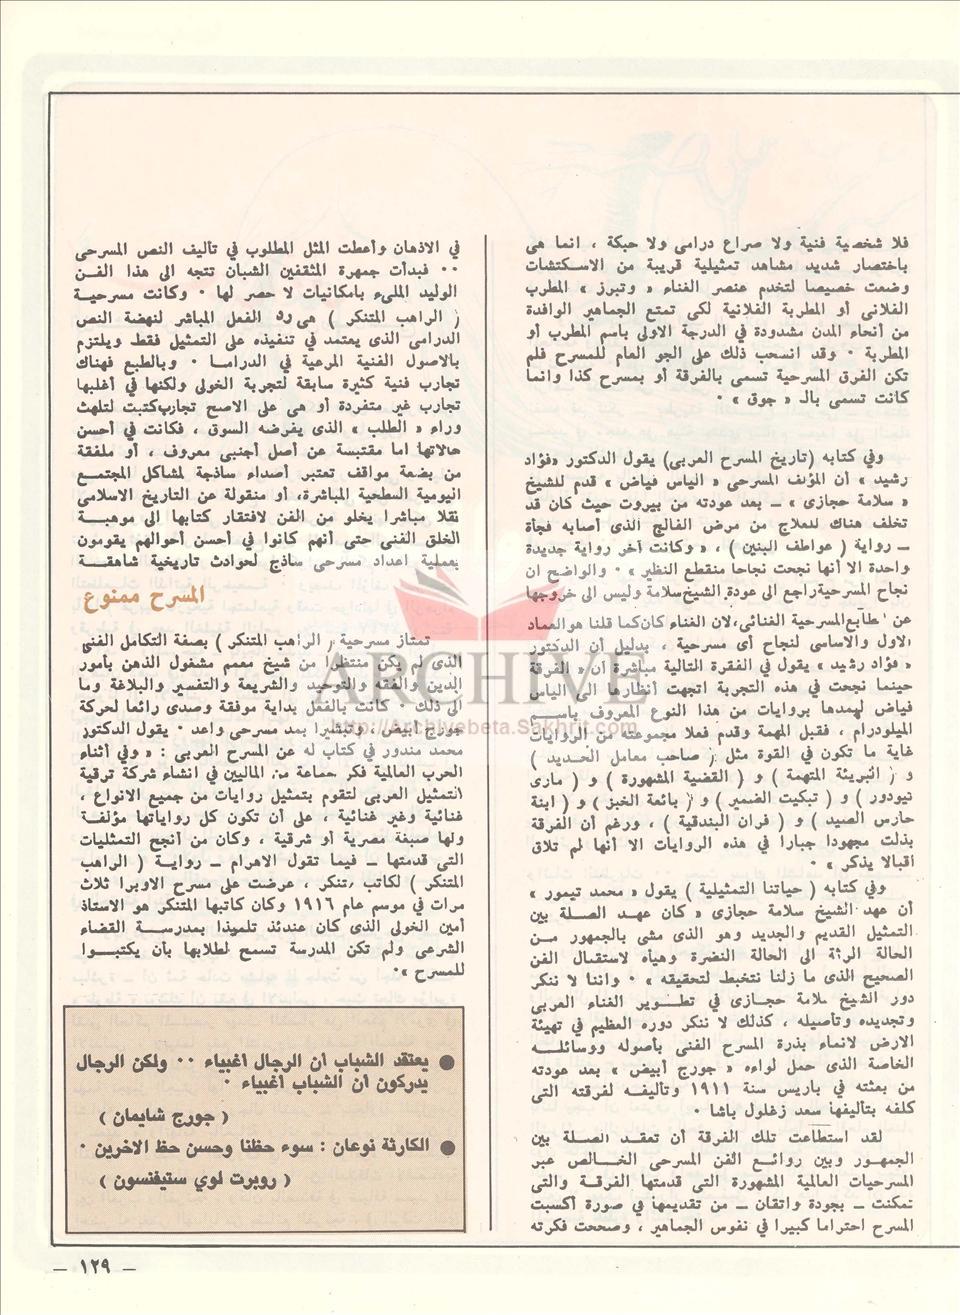 فلا شخصية فنية ولا صراع درامى ولا حبكة ، انما هى
باختصار شديد مشاهد تمثيلية قريبة من الاسكتشات
وضعت خصيصا لتخدم عنصر الغناء « وتبرز » المطرب
الفلانى أو المطربة الفلانية لكى تمتع الجماهير الوافدة
من أنحاء المدن مشدودة في الدرجة الاولى باسم المطرب أو
المطربة ٠ وقد انسحب ذلك على الجو العام للمسرح فلم
تكن الفرق المسرحية تسمى بالفرقة أو بمسرح كذا وانما
كانت تسمى بالـ « جوق » ٠
وفي كتابه (تاريخ المسرح العربى) يقول الدكتور «فؤاد
رشيد » أن المؤلف المسرحى « الياس فياض » قدم للشيخ
« سلامة حجازى » ــ بعد عودته من بيروت حيث كان قد
تخلف هناك للعلاج من مرض الفالج الذى أصابه فجأة
ــ رواية ( عواطف البنين ) ، « وكانت آخر رواية جديدة
واحدة الا أنها نجحت نجاحا منقطع النظير » ٠ والواضح ان
نجاح المسرحية راجع الى عودة الشيخ سلامة وليس الى خروجها
عن طابع المسرحية الغنائى، لان الغناء كان كما قلنا هو العماد
الاول والاساسى لنجاح أى مسرحية ، بدليل أن الدكتور
« فؤاد رشيد » يقول في الفقرة التالية مباشرة أن« الفرقة
حينما نجحت في هذه التجربة اتجهت أنظارها الى الياس
فياض ليمدها بروايات من هذا النوع المعروف باسم
الميلودرام ، فقبل المهمة وقدم فعلا مجموعة من الروايات
غاية ما تكون في القوة مثل ( صاحب معامل الحديد )
و ( البريئة المتهمة ) و ( القضية المشهورة ) و ( مارى
تيودور ) و ( تبكيت الضمير ) و ( بائعة الخبز ) و ( ابنة
حارس الصيد ) و ( فران البندقية ) ، ورغم أن الفرقة
بذلت مجهودا جبارا في هذه الروايات الا أنها لم تلاق
اقبالا يذكر » ٠
وفي كتابه ( حياتنا التمثيلية ) يقول « محمد تيمور »
أن عهد الشيخ سلامة حجازى « كان عهد الصلة بين
التمثيل القديم والجديد وهو الذى مشى بالجمهور من
الحالة الرثة الى الحالة النضرة وهيأه لاستقبال الفن
الصحيح الذى ما زلنا نتخبط لتحقيقه » ٠ واننا لا ننكر
دور الشيخ سلامة حجازى في تطوير الغناء العربى
وتجديده وتأصيله ، كذلك لا ننكر دوره العظيم في تهيئة
الارض لانماء بذرة المسرح الفنى بأصوله ووسائله
الخاصة الذى حمل لواءه « جورج أبيض » بعد عودته
من بعثته في باريس سنة ١٩١١ وتأليفه لفرقته التى
كلفه بتأليفها سعد زغلول باشا ٠
لقد استطاعت تلك الفرقة أن تعقد الصلة بين
الجمهور وبين روائع الفن المسرحى الخالص عبر
المسرحيات العالمية المشهورة التى قدمتها الفرقة والتى
تمكنت ــ بجودة واتقان ــ من تقديمها في صورة أكسبت
المسرح احتراما كبيرا في نفوس الجماهير ، وصححت فكرته
في الاذهان وأعطت المثل المطلوب في تأليف النص المسرحى
٠٠ فبدأت جمهرة المثقفين الشبان تتجه الى هذا الفن
الوليد المليء بامكانيات لا حصر لها ٠ وكانت مسرحية
( الراهب المتنكر ) هى رد الفعل المباشر لنهضة النص
الدرامى الذى يعتمد في تنفيذه على التمثيل فقط ويلتزم
بالاصول الفنية المرعية في الدراما ٠ وبالطبع فهناك
تجارب فنية كثيرة سابقة لتجربة الخولى ولكنها في أغلبها
تجارب غير متفردة أو هى على الاصح تجارب كتبت لتلهث
وراء « الطلب » الذى يفرضه السوق ، فكانت في أحسن
حالاتها اما مقتبسة عن أصل أجنبى معروف ، أو ملفقة
من بضعة مواقف تعتبر أصداء ساذجة لمشاكل المجتمع
اليومية السطحية المباشرة، أو منقولة عن التاريخ الاسلامى
نقلا مباشرا يخلو من الفن لافتقار كتابها الى موهبة
الخلق الفنى حتى أنهم كانوا في أحسن أحوالهم يقومون
بعملية اعداد مسرحى ساذج لحوادث تاريخية شاهقة
المسرح ممنوع
تمتاز مسرحية ( الراهب المتنكر ) بصفة التكامل الفنى
الذى لم يكن منتظرا من شيخ معمم مشغول الذهن بأمور
الدين والفقه والتوحيد والشريعة والتفسير والبلاغة وما
الى ذلك ٠ كانت بالفعل بداية موفقة وصدى رائعا لحركة
جورج أبيض ، وتبشيرا بمد مسرحى واعد ٠ يقول الدكتور
محمد مندور في كتاب له عن المسرح العربى : « وفي أثناء
الحرب العالمية فكر جماعة من الماليين في انشاء شركة ترقية
التمثيل العربى لتقوم بتمثيل روايات من جميع الانواع ،
غنائية وغير غنائية ، على أن تكون كل رواياتها مؤلفة
ولها صبغة مصرية أو شرقية ، وكان من أنجح التمثليات
التى قدمتها ــ فيما تقول الاهرام ــ رواية ( الراهب
المتنكر ) لكاتب متنكر ، عرضت على مسرح الاوبرا ثلاث
مرات في موسم عام ١٩١٦ وكان كاتبها المتنكر هو الاستاذ
أمين الخولى الذى كان عندئذ تلميذا بمدرسة القضاء
الشرعى ولم تكن المدرسة تسمح لطلابها بأن يكتبوا
للمسرح »٠
● يعتقد الشباب أن الرجال أغبياء ٠٠ ولكن الرجال
يدركون أن الشباب أغبياء ٠
( جورج شايمان )
● الكارثة نوعان : سوء حظنا وحسن حظ الاخرين ٠
( روبرت لوي ستيفنسون )
ــ ١٢٩ ــ
ARCHIVE
http://Archivebeta.Sakhrit.com